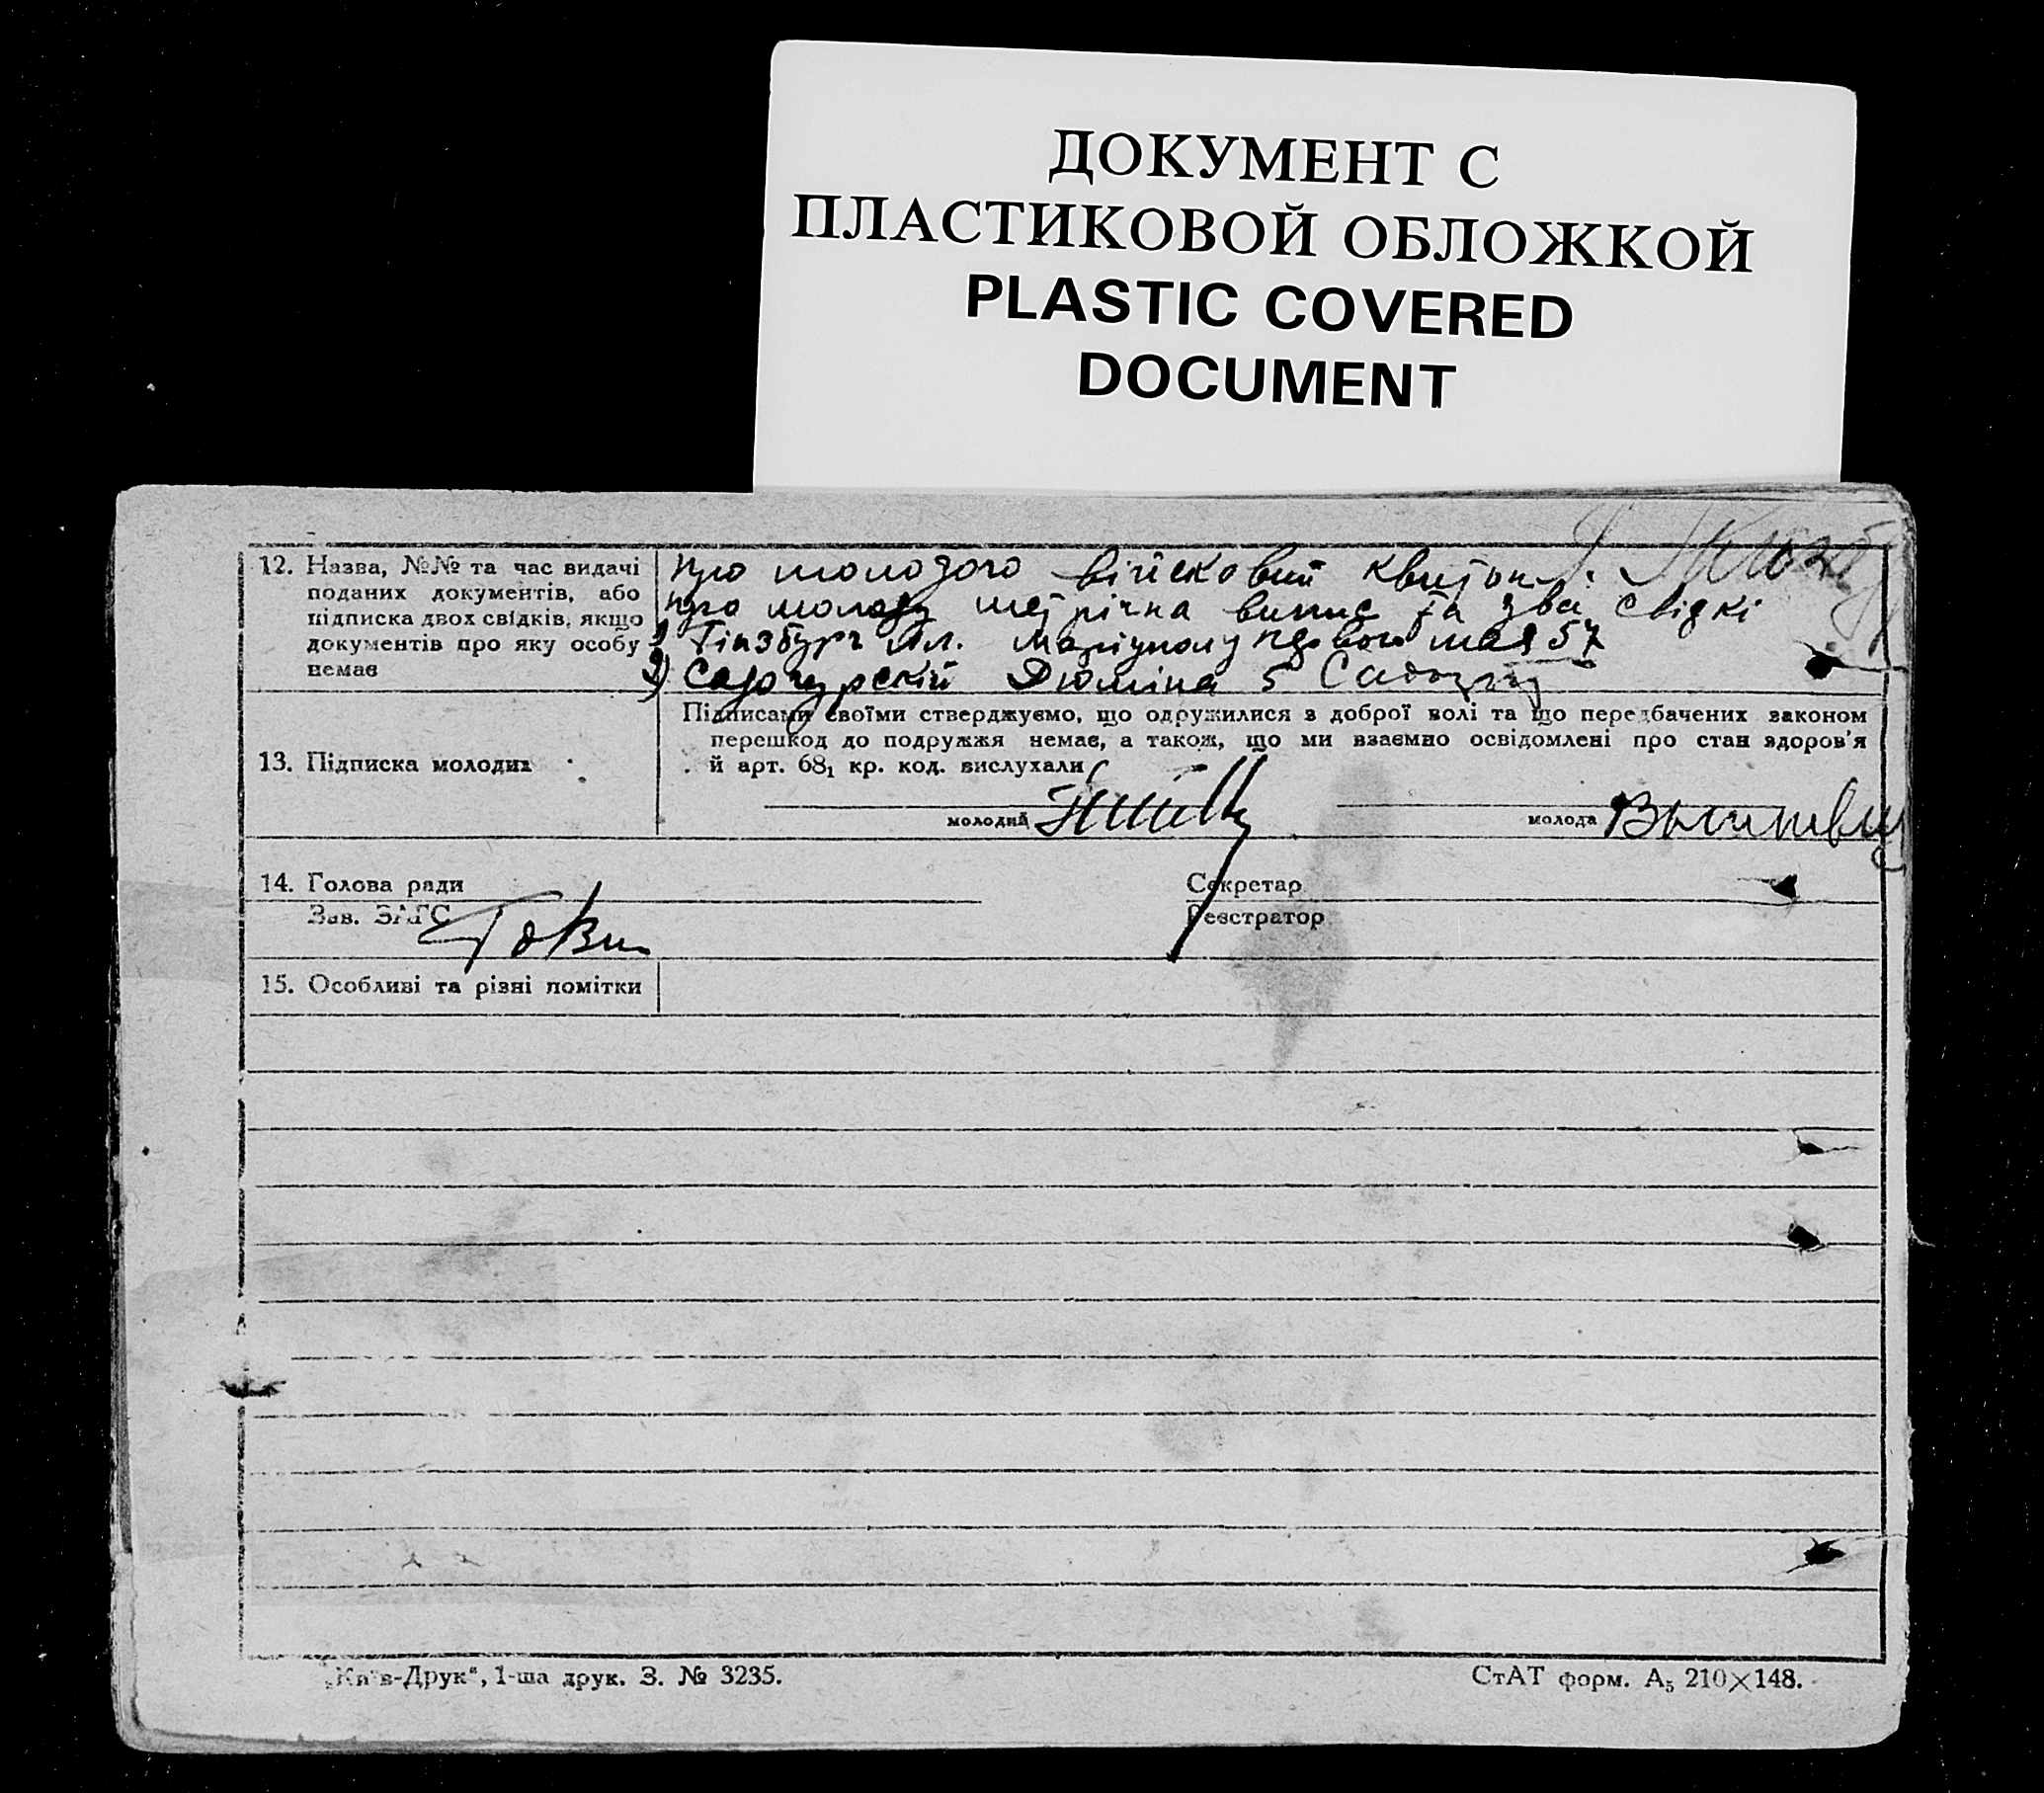 ДОКУМЕНТ С
ПЛАСТИКОВОЙ ОБЛОЖКОЙ
PLASTIC COVERED
DOCUMENT
12. Назва, №№ та час видачі
поданих документів, або
підписка двох свідків, якщо
документів про яку особу
немає
про молодого військовий квиток
про молоду метрічна випис та два свідкі
1) Гінзбург
2) Дюміна 5
13. Підписка молодих
Підписами своїми стверджуємо, що одружилися з доброї волі та що передбачених законом
перешкод до подружжя немає, а також, що ми взаємно освідомлені про стан здоров'я
й арт. 68₁ кр. код. вислухали
молодий
молода
14. Голова ради
Секретар
Зав. ЗАГС
Реєстратор
15. Особливі та різні помітки
„Київ-Друк“, 1-ша друк. З. № 3235.
СтАТ форм. А₅ 210×148.